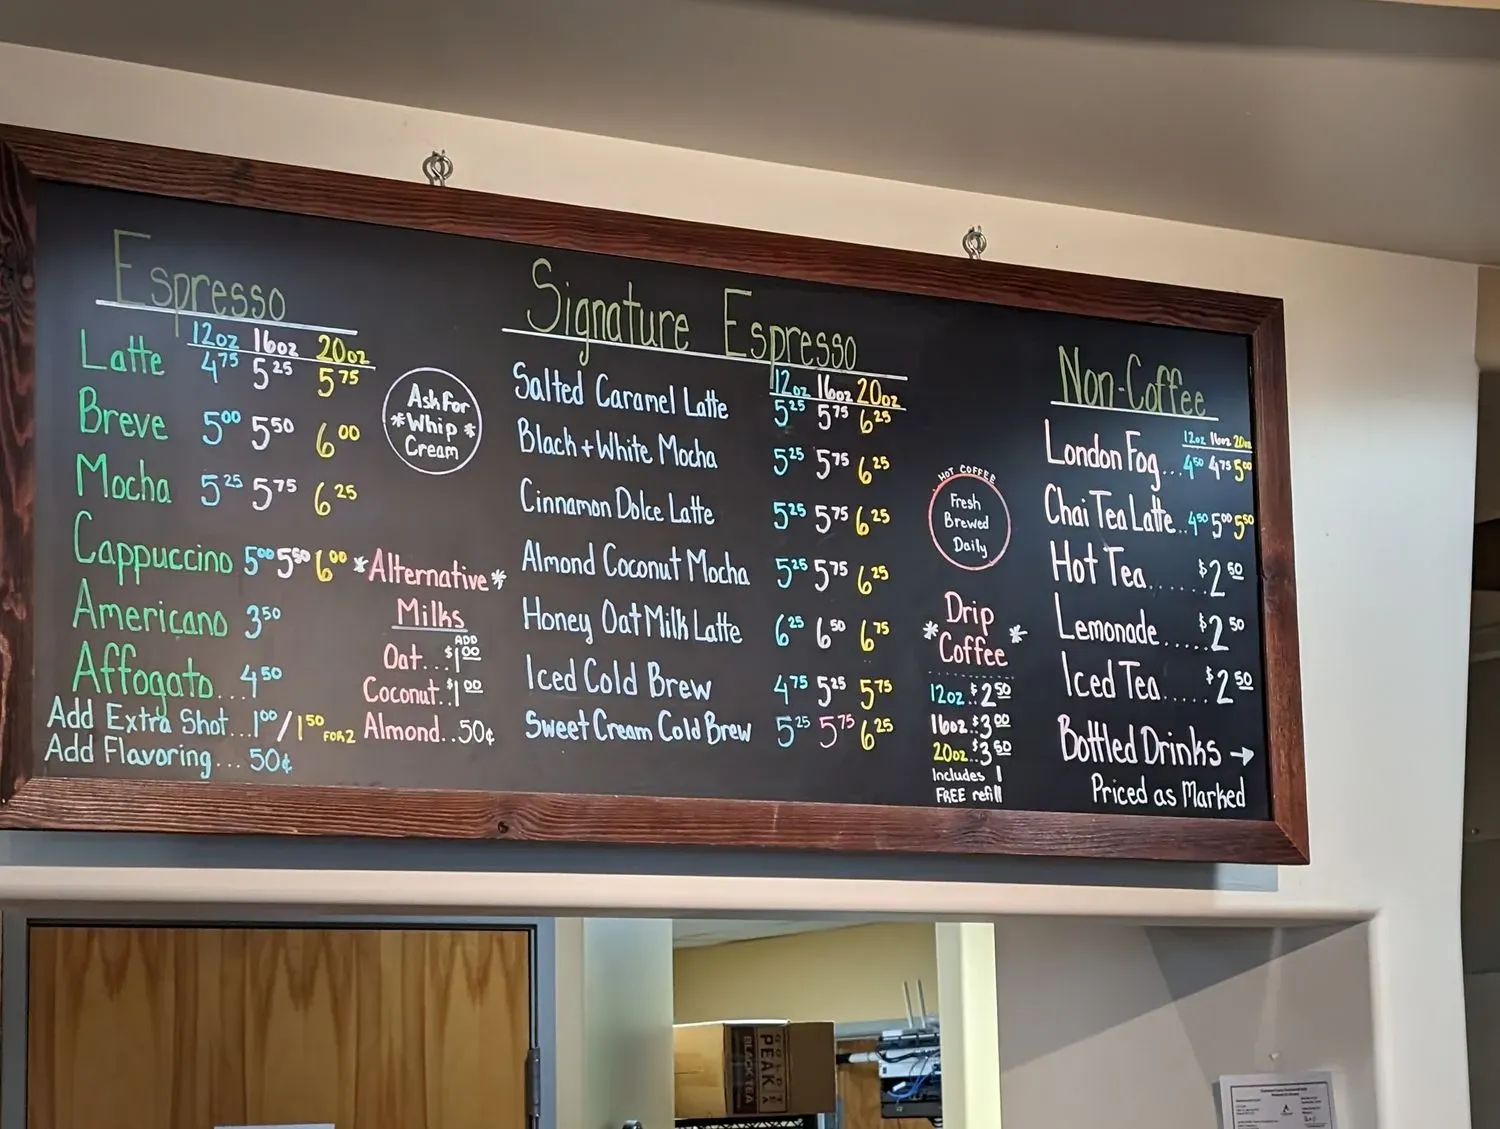 Espresso
12oz 16oz 20oz
Latte 4.75 5.25 5.75
Breve 5.00 5.50 6.00
Mocha 5.25 5.75 6.25
Cappuccino 5.00 5.50 6.00
Americano 3.50
Affogato... 4.50
Add Extra Shot...1.00/1.50 FOR 2
Add Flavoring... 50¢
Ask For
*Whip*
Cream
*Alternative*
Milks
ADD
Oat...$1.00
Coconut..$1.00
Almond..50¢
Signature Espresso
12oz 16oz 20oz
Salted Caramel Latte 5.25 5.75 6.25
Black + White Mocha 5.25 5.75 6.25
Cinnamon Dolce Latte 5.25 5.75 6.25
Almond Coconut Mocha 5.25 5.75 6.25
Honey Oat Milk Latte 6.25 6.50 6.75
Iced Cold Brew 4.75 5.25 5.75
Sweet Cream Cold Brew 5.25 5.75 6.25
HOT COFFEE
Fresh
Brewed
Daily
*Drip*
Coffee
12oz..$2.50
16oz..$3.00
20oz..$3.50
Includes 1
FREE refill
Non-Coffee
12oz 16oz 20oz
London Fog...4.50 4.75 5.00
Chai Tea Latte..4.50 5.00 5.50
Hot Tea......$2.50
Lemonade......$2.50
Iced Tea.....$2.50
Bottled Drinks →
Priced as Marked
GOLD
PEAK
BLACK TEA